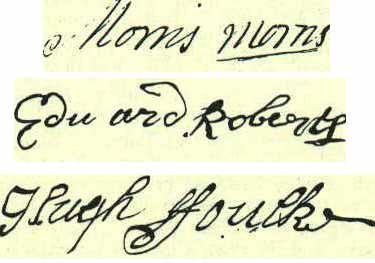 Morris Morris
Edward Roberts
Hugh ffoulke